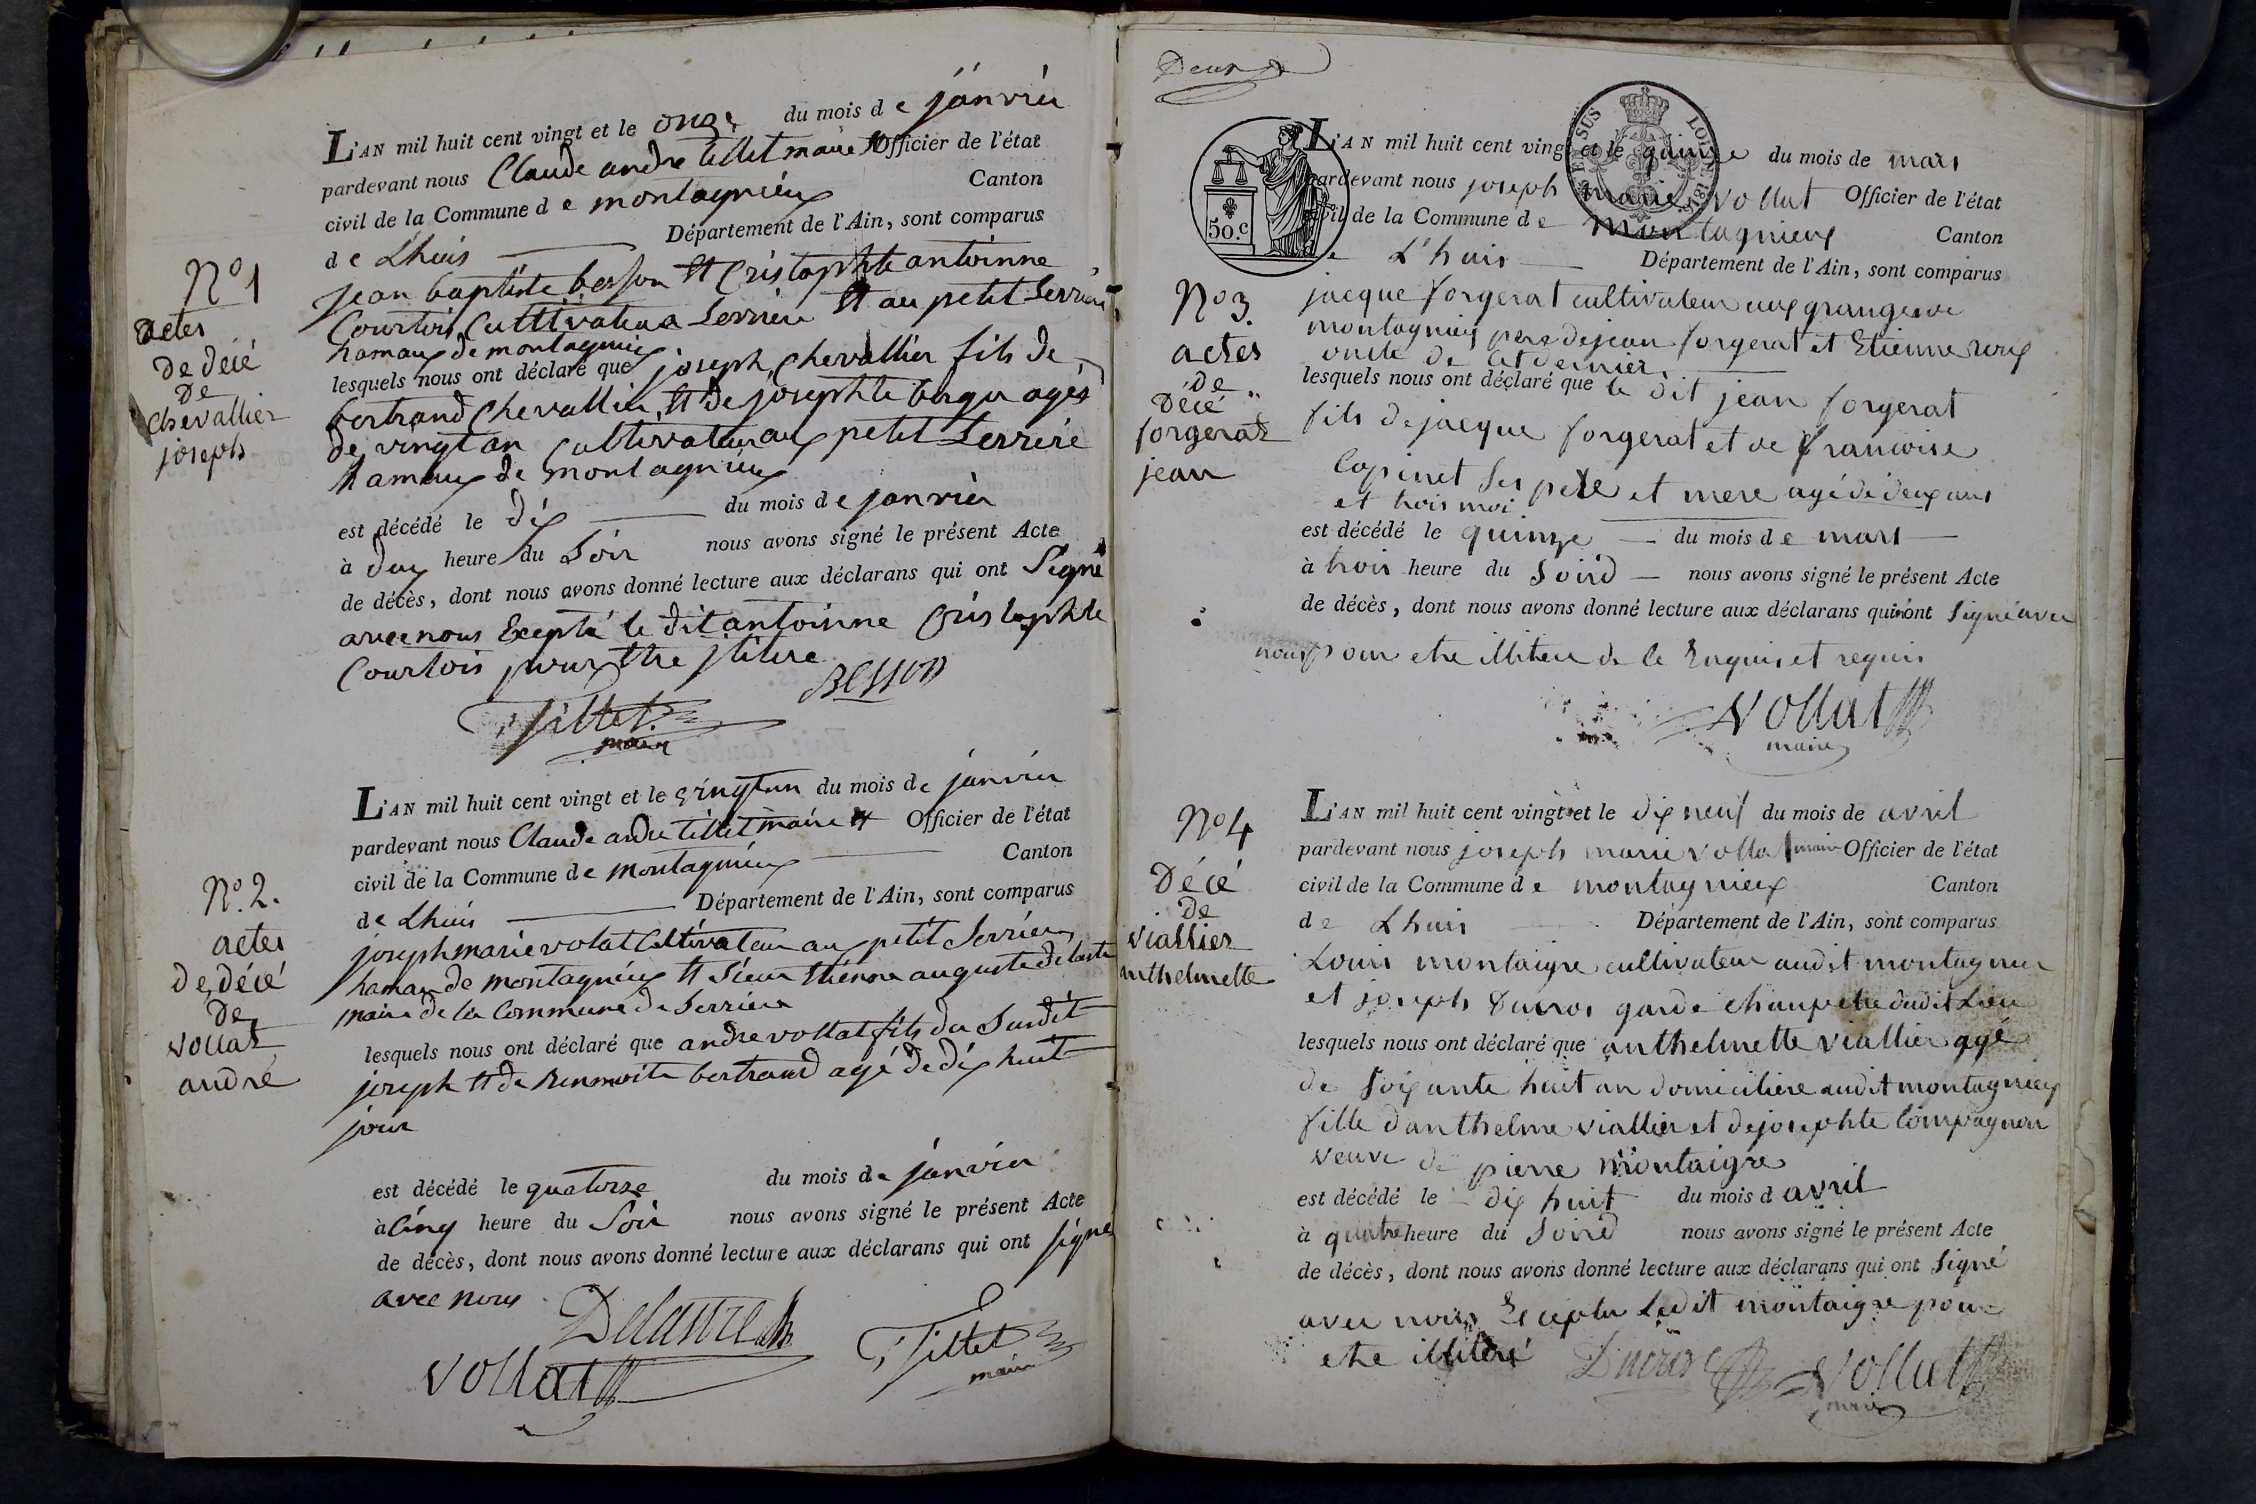 L'AN mil huit cent vingt et le onze du mois de janvier
pardevant nous Claude andre tillet maire et Officier de l'état
civil de la Commune de montagnieux Canton
de Lhuis Département de l'Ain, sont comparus
jean baptiste besson et Cristophte antoinne
Courtois Cultivateur Serriere et au petit Serriere
hamaux de montagnieux
lesquels nous ont déclaré que joseph Chevallier fils de
bertrand Chevallier et de josephte berger agés
de vingt an Cultivateur au petit Serriere
hamaux de montagnieux
est décédé le dix du mois de janvier
à deux heure du Soir nous avons signé le présent Acte
de décès, dont nous avons donné lecture aux déclarans qui ont Signé
avec nous Exepté le dit antoinne Cristophte
Courtois pour
BESSON
Tillet
maire
N° 1
actes
de décé
De
Chevallier
joseph
L'AN mil huit cent vingt et le vingt un du mois de janvier
pardevant nous Claude andre tillet maire et Officier de l'état
civil de la Commune de montagnieux Canton
de Lhuis Département de l'Ain, sont comparus
joseph marie volat Cultivateur au petit Serriere
hamau de montagnieux et Sieur Etienne auguste delastre
maire de la Commune de Serriere
lesquels nous ont déclaré que andre vollat fils du Surdit
joseph et de bertrand agé de dix huit
jour
est décédé le quatorze du mois de janvier
à cinq heure du Soir nous avons signé le présent Acte
de décès, dont nous avons donné lecture aux déclarans qui ont signé
avec nous
Delastre
vollat
Tillet
maire
N° 2.
actes
de décé
De
vollat
andré
Deux
L'AN mil huit cent vingt et le quinze du mois de mars
pardevant nous joseph marie vollat Officier de l'état
civil de la Commune de Montagnieux Canton
L'huis Département de l'Ain, sont comparus
50.c
jacque forgerat cultivateur aux granges de
montagnieux pere de jean forgerat et Etienne roux
oncle de cet dernier
lesquels nous ont déclaré que le dit jean forgerat
fils de jacque forgerat et de francoise
Capinet Ses pere et mere agé de deux ans
et trois moi
est décédé le quinze du mois de mars
à trois heure du Soird nous avons signé le présent Acte
de décès, dont nous avons donné lecture aux déclarans qui n'ont Signé avec
nous pour etre de ce Enquis et requis
vollat
maire
N° 3.
actes
de
Décé
forgerat
jean
L'AN mil huit cent vingt et le dix neuf du mois de avril
pardevant nous joseph marie vollat maire Officier de l'état
civil de la Commune de montagnieux Canton
de Lhuis Département de l'Ain, sont comparus
Louis montaigre cultivateur audit montagnieux
et joseph Ducros garde champetre dudit Lieu
lesquels nous ont déclaré que anthelmette viallier agé
de soixante huit an domiciliere audit montagnieux
fille danthelme viallier et de josephte Compagnon
veuve de pierre montaigre
est décédé le dix huit du mois d avril
à quatre heure du Soird nous avons signé le présent Acte
de décès, dont nous avons donné lecture aux déclarans qui ont Signé
avec nous Ledit montaigre pour
etre
Ducros
vollat
maire
N° 4
Décé
de
viallier
anthelmette